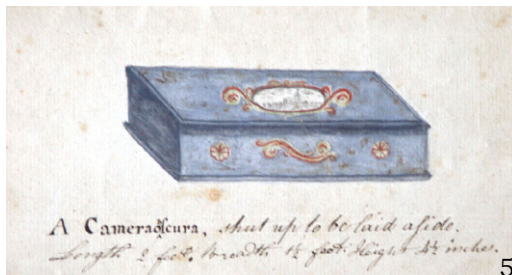 A Camera obscura, shut up to be laid aside.
Length 2 foot, breadth 1½ foot: Height 4½ inches.
5